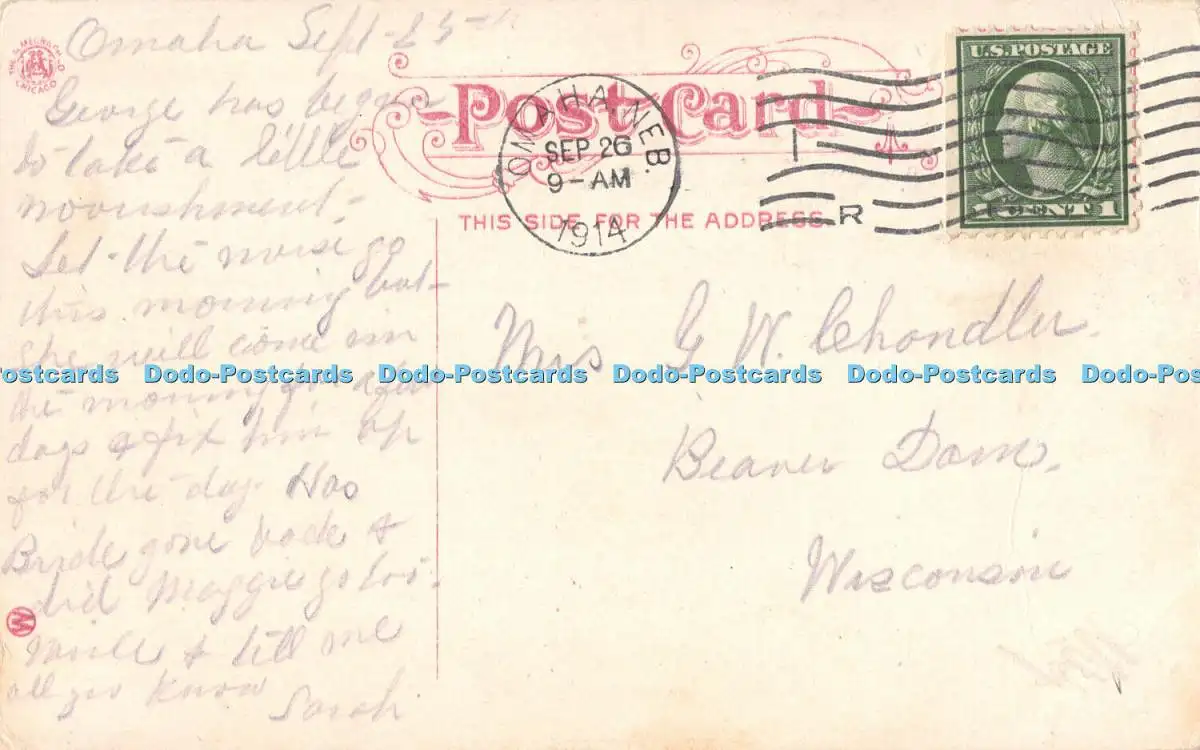 Omaha Sept 25th
George has begun
to take a little
noorishment.
Let the nurse go
this morning but
she will come in
the morning for a few
days & fix him up
for the day. Has
Bride gone back &
did Maggie go too.
Write & tell me
all you know
Sarah
CHICAGO
M
Post Card
THIS SIDE FOR THE ADDRESS.
OMAHA, NEB.
SEP 26
9-AM
1914
1 A
R
U.S. POSTAGE
1 CENT 1
Mrs G W. Chandler.
Beaver Dam.
Wisconsin
ostcards Dodo-Postcards Dodo-Postcards Dodo-Postcards Dodo-Postcards Dodo-Postca